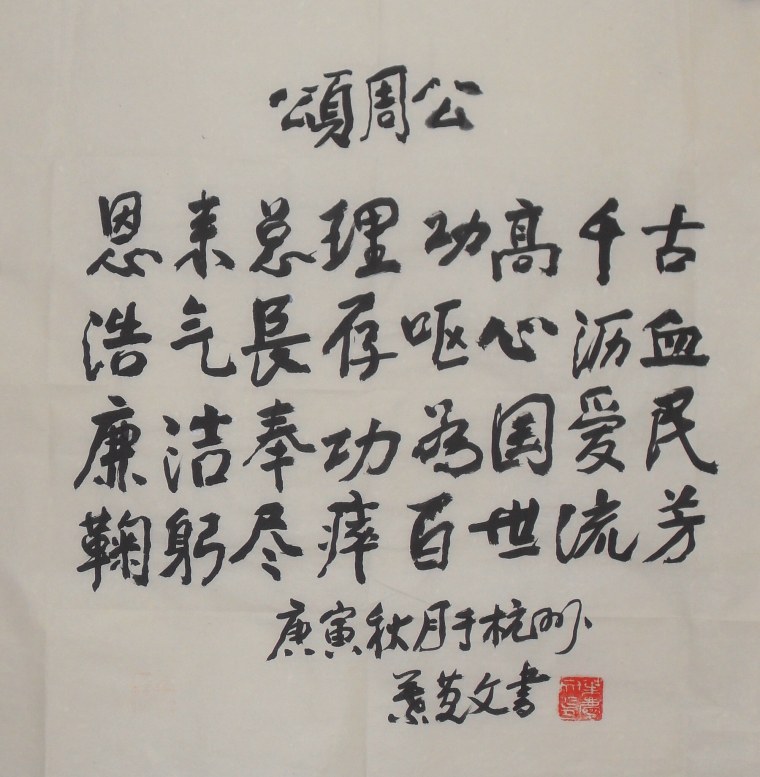 頌周公
恩来总理功高千古
浩气長存呕心沥血
廉洁奉功為国爱民
鞠躬尽瘁百世流芳
庚寅秋月于杭州
文書